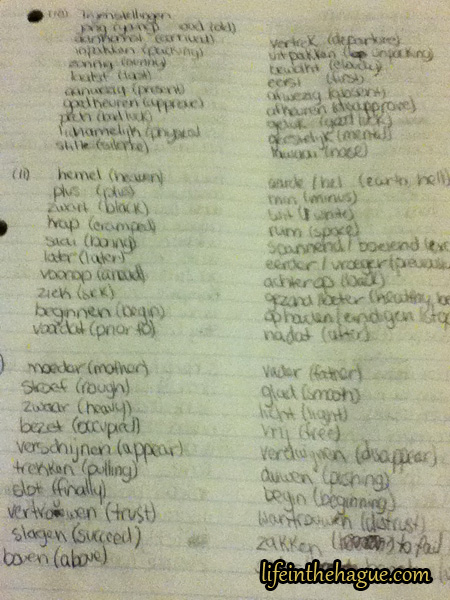 (10) Tegenstellingen
jong (young) oud (old)
aankomst (arrival) vertrek (departure)
inpakken (packing) uitpakken (unpacking)
zonnig (sunny) bewolkt (cloudy)
laatst (last) eerst (first)
aanwezig (present) afwezig (absent)
goedkeuren (approve) afkeuren (disapprove)
pech (bad luck) geluk (good luck)
lichamelijk (physical) geestelijk (mental)
stilte (silence) lawaai (noise)
(11) hemel (heaven) aarde / hel (earth, hell)
plus (plus) min (minus)
zwart (black) wit (white)
krap (cramped) ruim (space)
saai (boring) spannend / boeiend
later (later) eerder / vroeger
voorop (ahead) achterop (back)
ziek (sick) gezond / beter (healthy
beginnen (begin) ophouden / eindigen
voordat (prior to) nadat (after)
moeder (mother) vader (father)
stroef (rough) glad (smooth)
zwaar (heavy) licht (light)
bezet (occupied) vrij (free)
verschijnen (appear) verdwijnen (disappear)
trekken (pulling) duwen (pushing)
slot (finally) begin (beginning)
vertrouwen (trust) wantrouwen (distrust)
slagen (succeed) zakken to fail
boven (above)
lifeinthehague.com